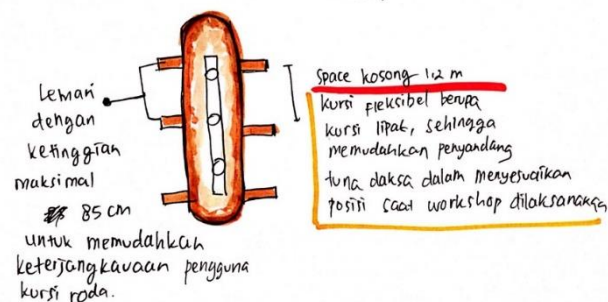 Lemari
dengan
ketinggian
maksimal
85 cm
untuk memudahkan
keterjangkauaan pengguna
kursi roda.
Space kosong 1.2 m
kursi fleksibel berupa
kursi lipat, sehingga
memudahkan penyandang
tuna daksa dalam menyesuaikan
posisi saat workshop dilaksanakan